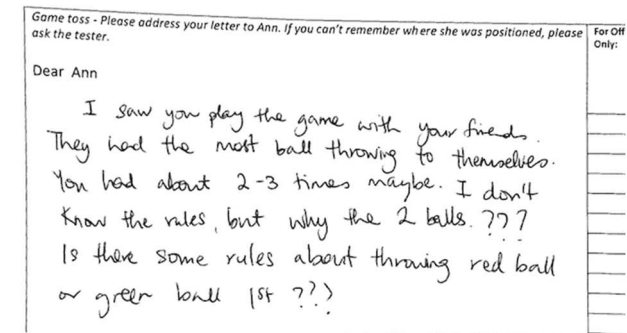 Game toss - Please address your letter to Ann. If you can't remember where she was positioned, please
ask the tester.
For Off
Only:
Dear Ann
I saw you play the game with your friends.
They had the most ball throwing to themselves.
You had about 2-3 times maybe. I don't
know the rules, but why the 2 balls. ???
Is there some rules about throwing red ball
or green ball 1st ???